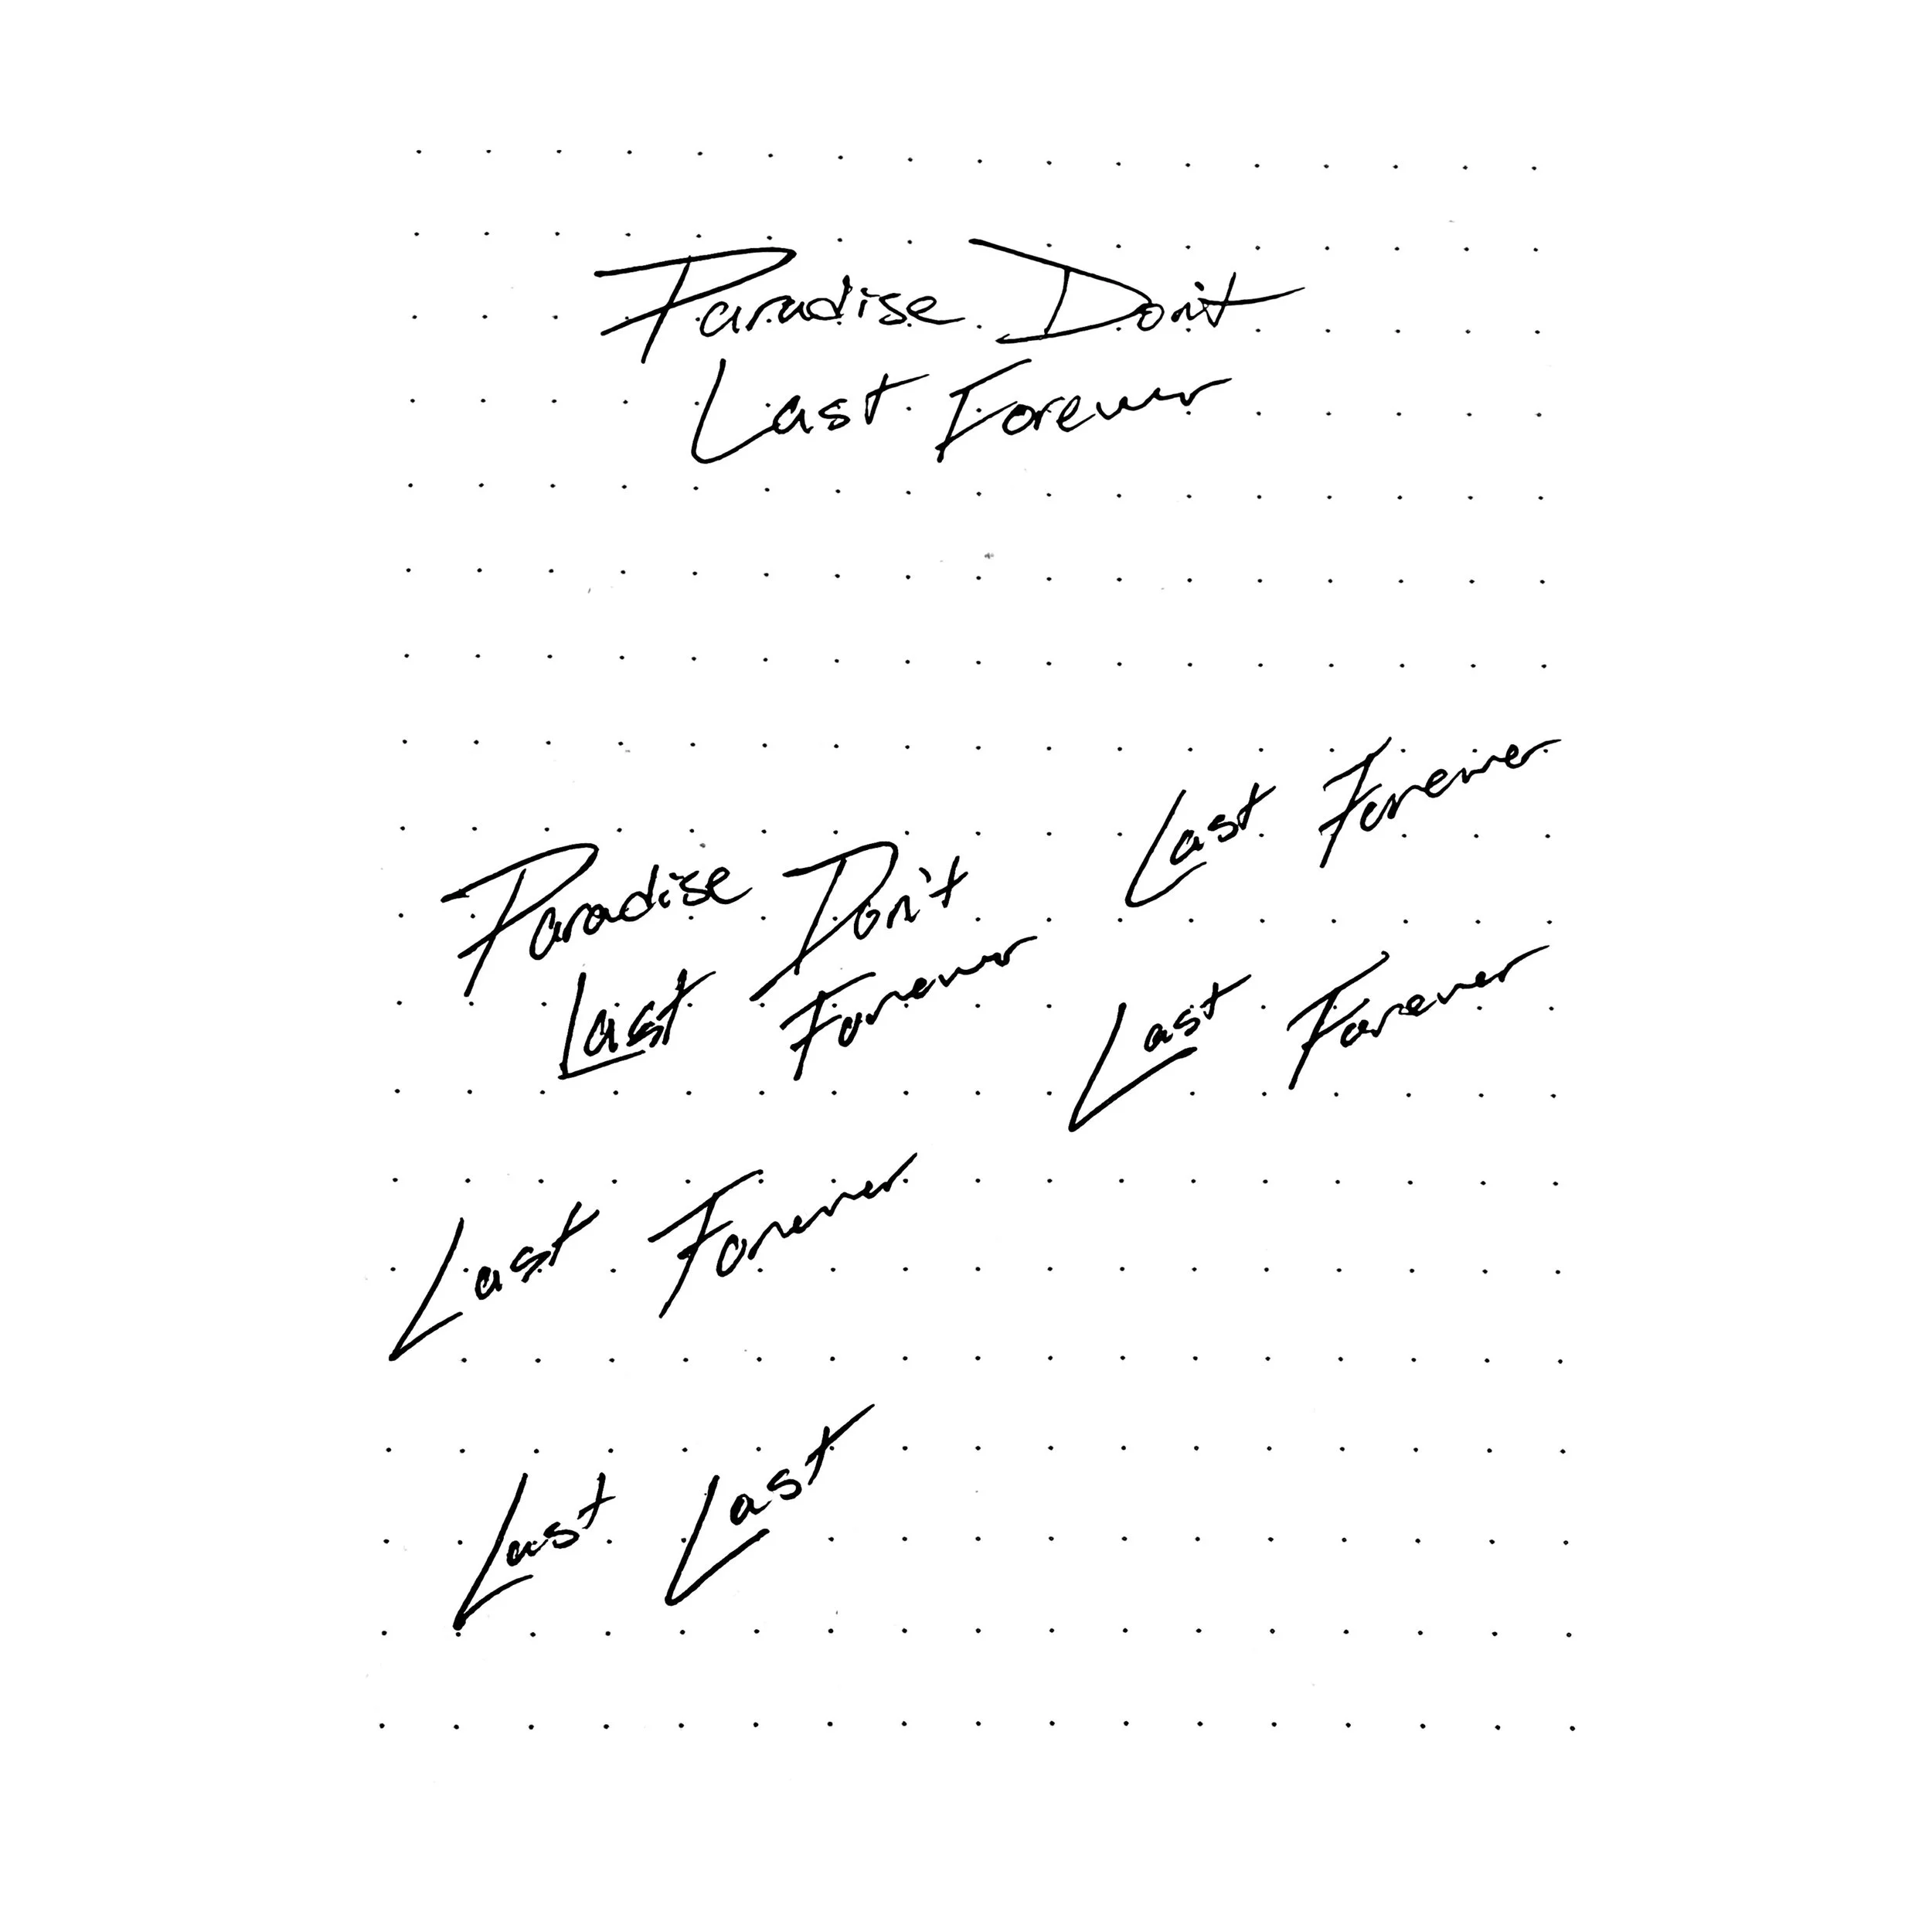 Paradise Don't
Last Forever
Last Forever
Paradise Don't
Last Forever
Last Forever
Last Forever
Last Last